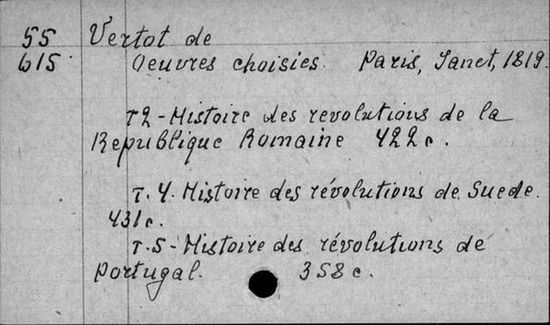 55 Vertot de
615 Oeuvres choisies. Paris, Janet, 1819.
T2 - Histoire des revolutions de la
Republique Romaine 422 c.
T. 4. Histoire des révolutions de Suede.
431 c.
T. 5 - Histoire des révolutions de
Portugal. 358 c.